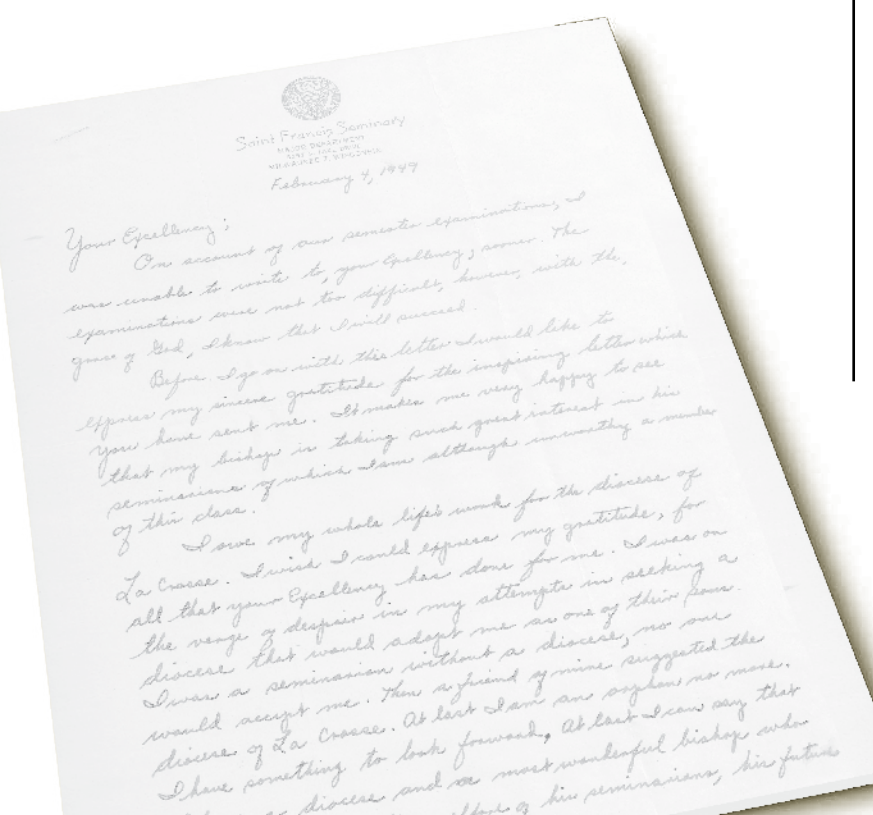 Saint Francis Seminary
MAJOR DEPARTMENT
MILWAUKEE 7, WISCONSIN
February 4, 1949
Your Excellency;
On account of our semester examinations, I
was unable to write to, your Excellency, sooner. The
examinations were not too difficult, however, with the
grace of God, I know that I will succeed.
Before I go on with this letter I would like to
express my sincere gratitude for the inspiring letter which
you have sent me. It makes me very happy to see
that my bishop is taking such great interest in his
seminarians of which I am although unworthy a member
of this class.
I owe my whole life's work for the diocese of
La Crosse. I wish I could express my gratitude, for
all that your Excellency has done for me. I was on
the verge of despair in my attempts in seeking a
diocese that would adopt me as one of their sons.
I was a seminarian without a diocese, no one
would accept me. Then a friend of mine suggested the
diocese of La Crosse. At last I am an orphan no more.
I have something to look forward, At last I can say that
diocese and a most wonderful bishop who
of his seminarians, his future